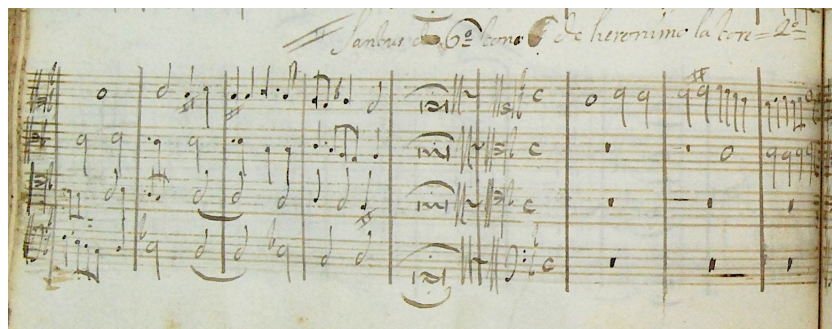 Santus de 6º tono de heronimo la tore = 2º =